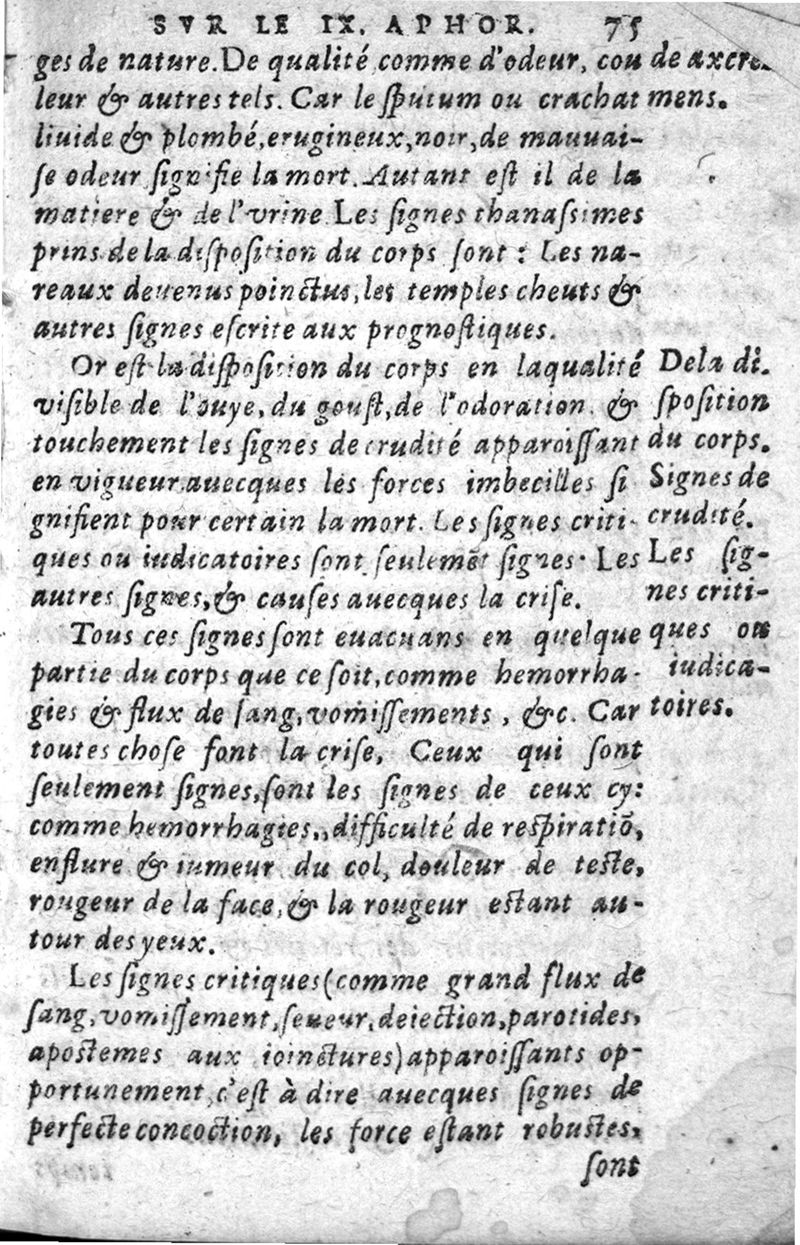 SVR LE IX. APHOR. 75
ges de nature. De qualité comme d'odeur, cou
leur & autres tels. Car le sputum ou crachat
liuide & plombé, erugineux, noir, de mauuai-
se odeur signifie la mort. Autant est il de la
matiere & de l'vrine Les signes thanassimes
prins de la disposition du corps sont : Les na-
reaux deuenus poinctus, les temples cheuts &
autres signes escrite aux prognostiques.
Or est la disposition du corps en laqualité
visible de l'ouye, du goust, de l'odoration. &
touchement les signes de crudité apparoissant
en vigueur auecques les forces imbecilles si
gnifient pour certain la mort. Les signes criti-
ques ou iudicatoires sont seulemēt signes. Les
autres signes, & causes auecques la crise.
Tous ces signes sont euacuans en quelque
partie du corps que ce soit, comme hemorrha-
gies & flux de sang, vomissements, &c. Car
toutes chose font la crise, Ceux qui sont
seulement signes, sont les signes de ceux cy:
comme hemorrhagies,, difficulté de respiratiō,
enflure & tumeur du col, douleur de teste,
rougeur de la face, & la rougeur estant au-
tour des yeux.
Les signes critiques (comme grand flux de
sang, vomissement, seueur, deiection, parotides,
apostemes aux ioinctures) apparoissants op-
portunement, c'est à dire auecques signes de
perfecte concoction, les force estant robustes,
sont
de axcre-
mens.
De la di-
sposition
du corps.
Signes de
crudité.
Les sig-
nes criti-
ques ou
iudica-
toires.